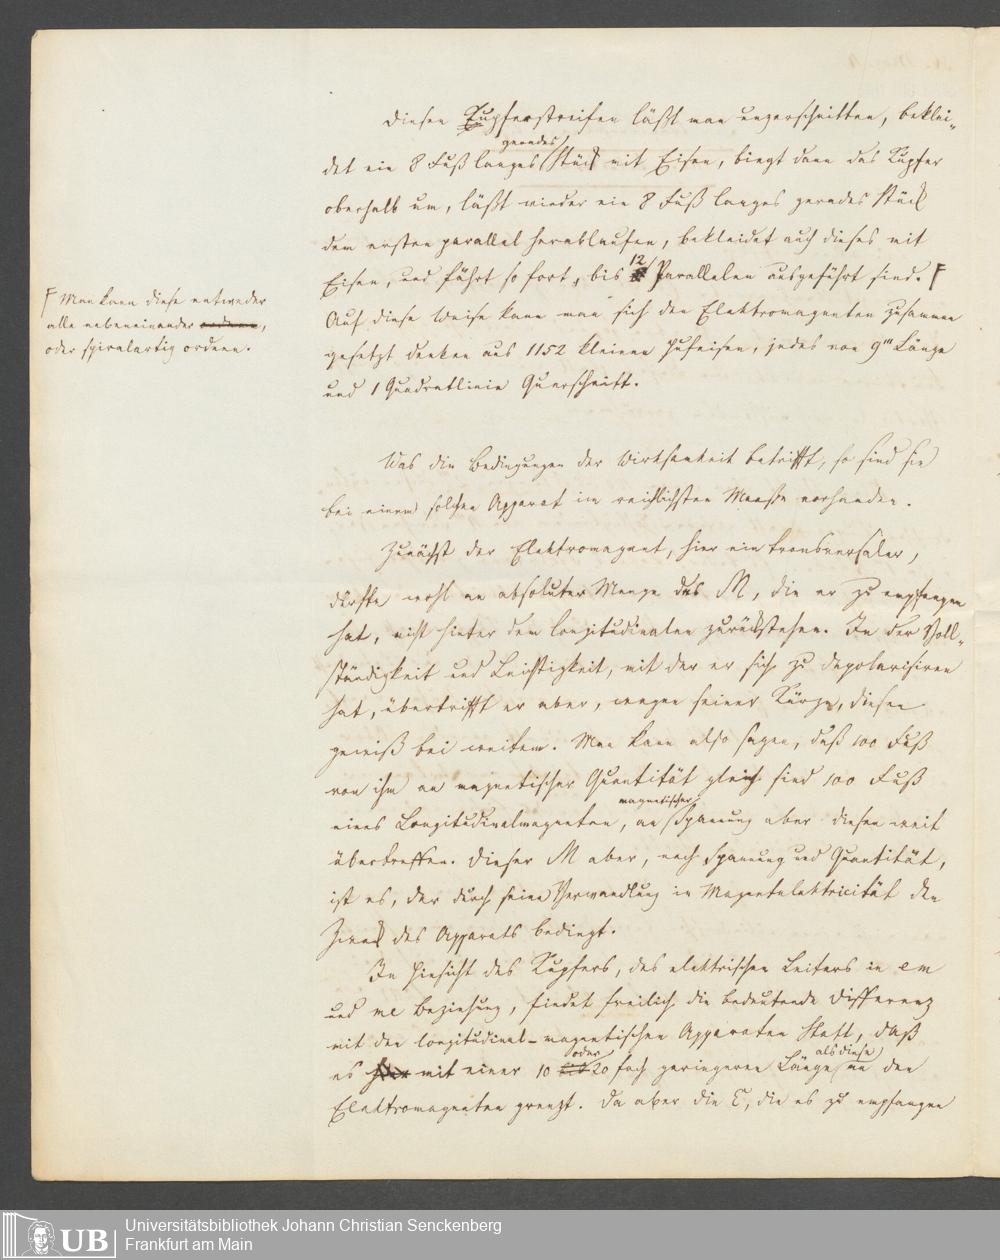 Diesen Kupferstreifen läßt man unzerschnitten, beklei-
det ein 8 Fuß langes gerades Stück mit Eisen, biegt dann das Kupfer
oberhalb um, läßt wieder ein 8 Fuß langes gerades Stück
dem ersten parallel herablaufen, bekleidet auch dieses mit
Eisen, und fährt so fort, bis 12 Parallelen ausgeführt sind. F
F Man kann diese entweder
alle nebeneinander ordnen,
oder spiralartig ordnen.
Auf diese Weise kann man sich den Elektromagneten zusammen
gesetzt denken aus 1152 kleinen Hufeisen, jedes von 9''' Länge
und 1 Quadratlinie Querschnitt.
Was die Bedingungen der Wirksamkeit betrifft, so sind sie
bei einem solchen Apparat im reichlichsten Maaße vorhanden.
Zunächst der Elektromagnet, hier ein transversaler,
dürfte wohl an absoluter Menge des M, die er zu empfangen
hat, nicht hinter dem longitudinalen zurückstehen. In der Voll-
ständigkeit und Leichtigkeit, mit der er sich zu depolarisiren
hat, übertrifft er aber, wegen seiner Kürze, diesen
gewiß bei weitem. Man kann also sagen, daß 100 Fuß
von ihm an magnetischer Quantität gleich sind 100 Fuß
eines Longitudinalmagneten, an magnetischer Spannung aber diesen weit
übertreffen. Dieser M aber, nach Spannung und Quantität,
ist es, der durch seine Verwandlung in Magnetelektricität den
Zweck des Apparats bedingt.
In Hinsicht des Kupfers, des elektrischen Leiters in em
und me Beziehung, findet freilich die bedeutende Differenz
mit den longitudinal-magnetischen Apparaten Statt, daß
es mit einer 10 oder 20 fach geringeren Länge als diese an den
Elektromagneten grenzt. Da aber die E, die es zu empfangen
Universitätsbibliothek Johann Christian Senckenberg
Frankfurt am Main
UB